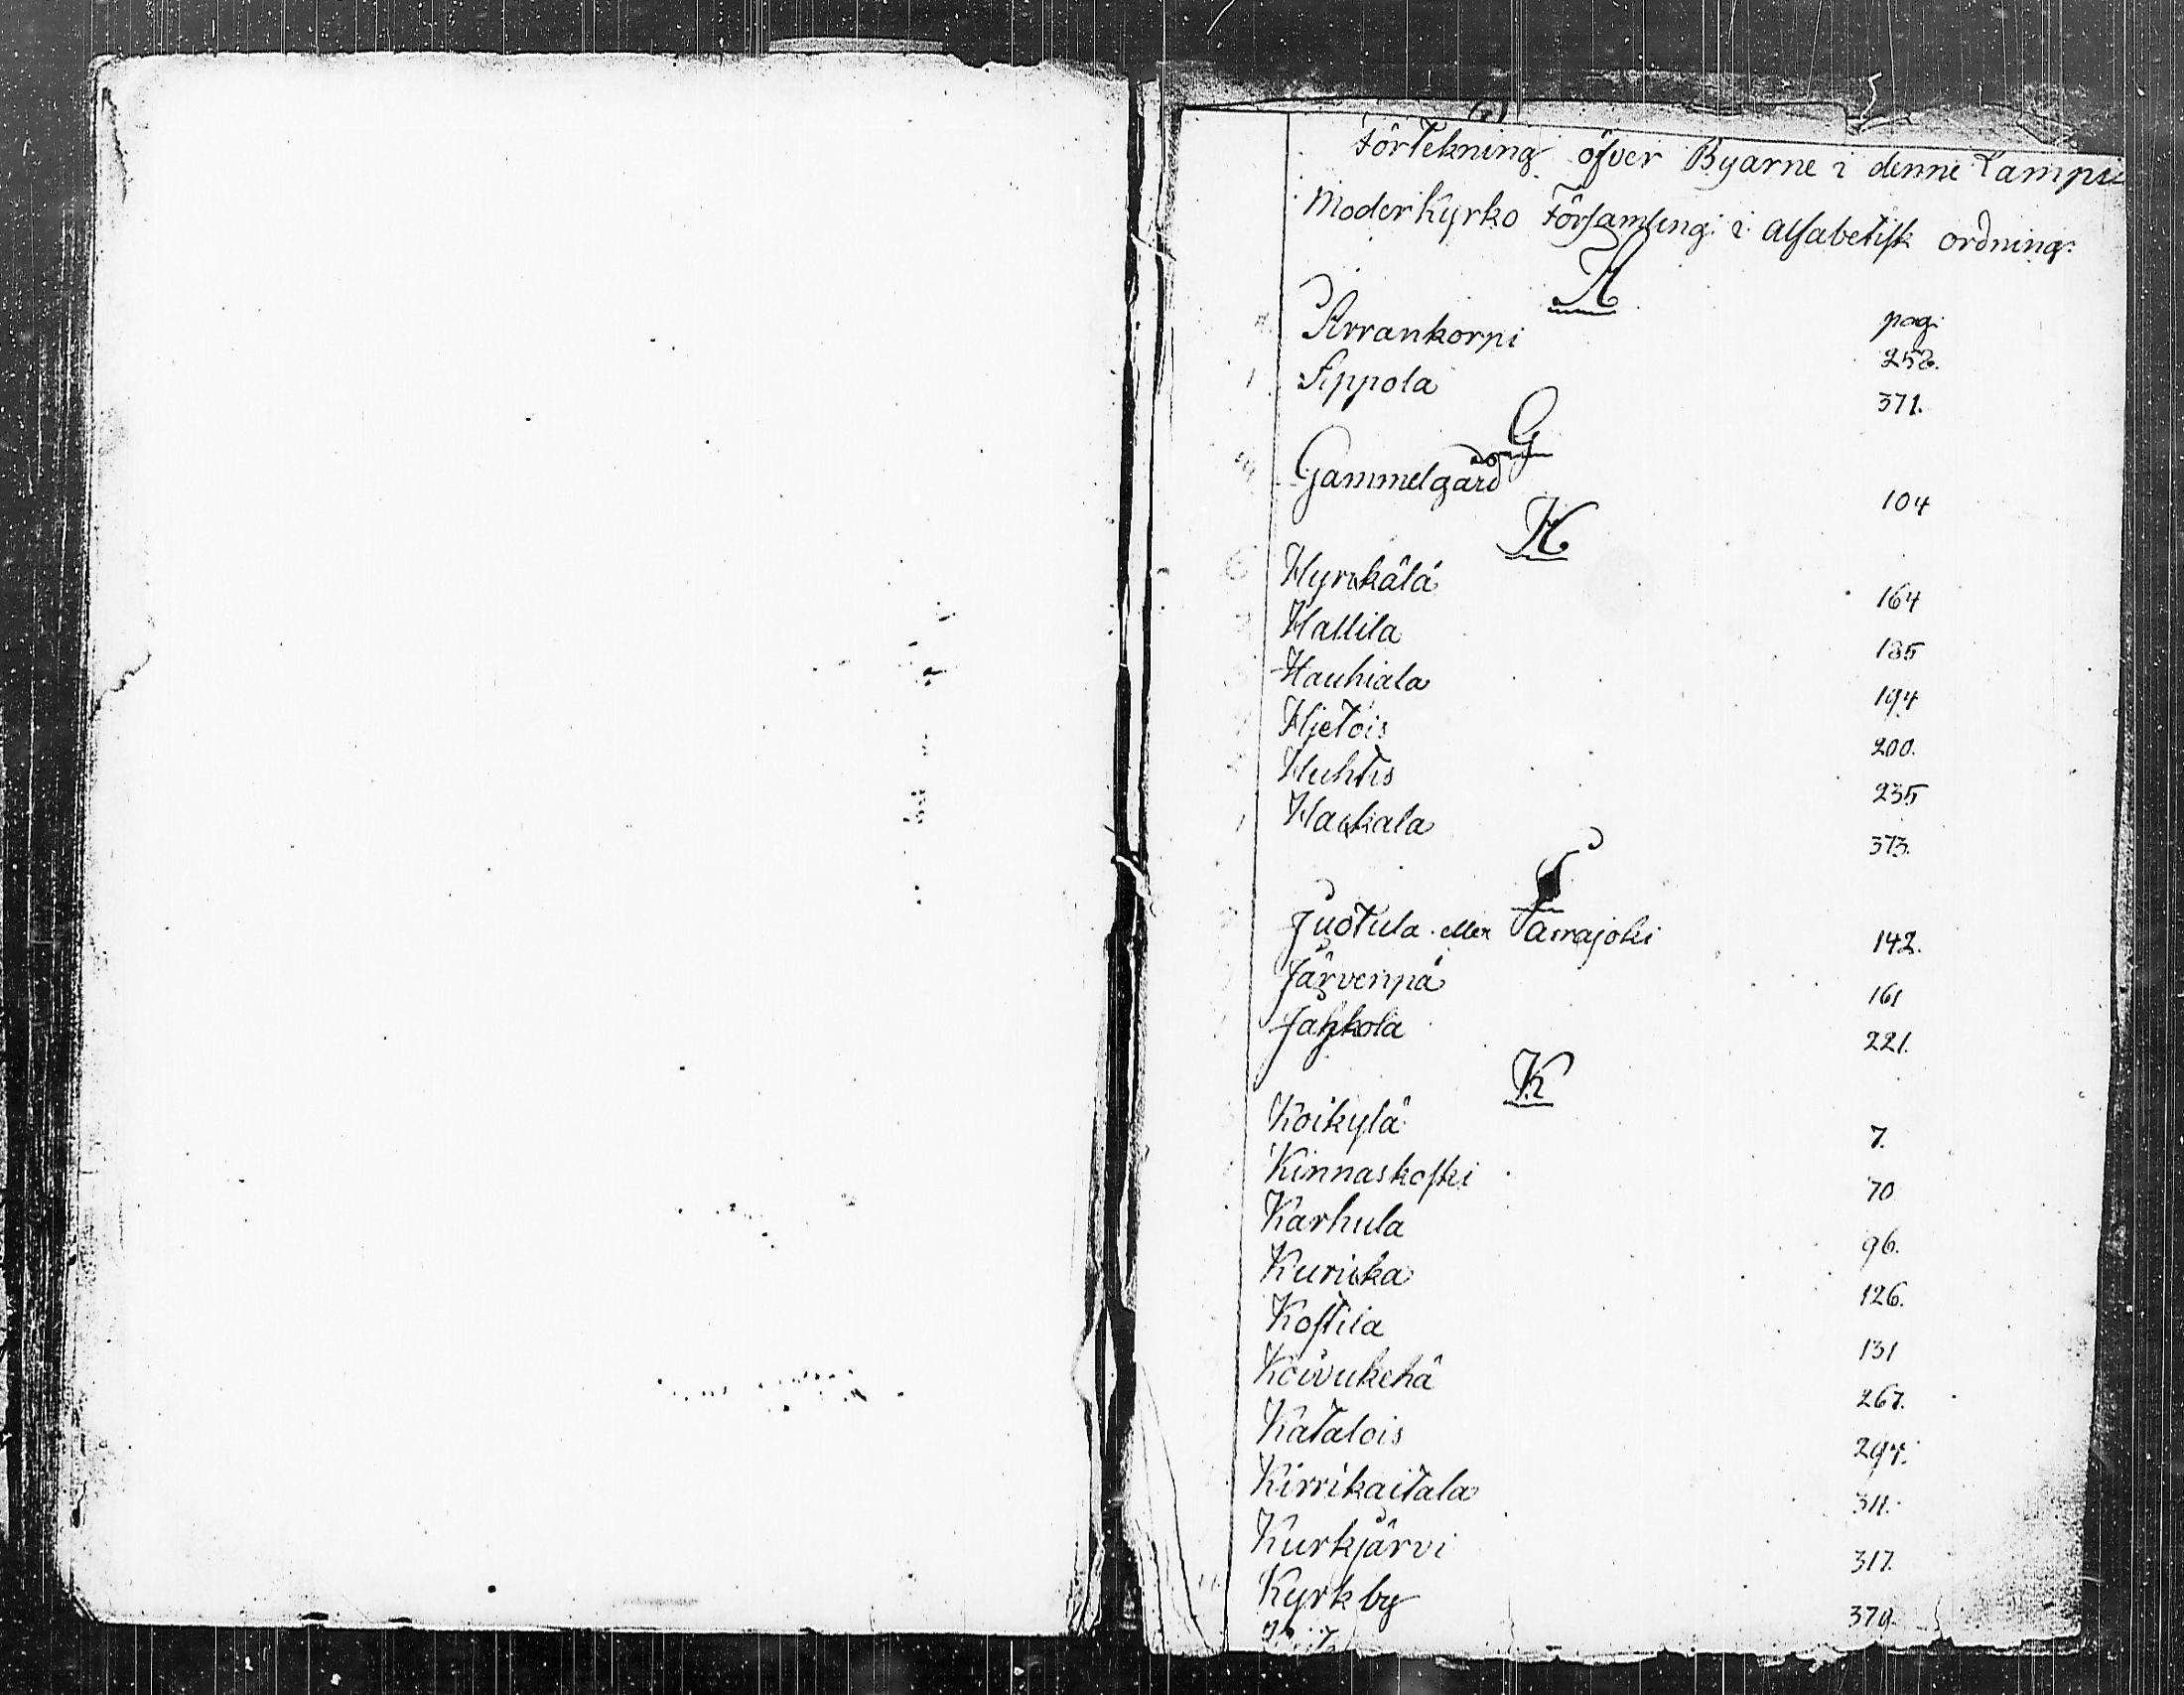 Förtekning öfver Byarne i denne Lampis
Moderkyrko Församling i alfabetisk ordning.
A
pag:
Arrankorpi 252.
Appola 371.
G
Gammelgård 104
H
Hyrikälä 164
Hallila 185
Hauhiala 194
Hietois 200.
Huhtis 235
Hackala 373.
J
Juotula eller Tarrajoki 142.
Järvenpä 161
Jahkola 221.
K
Koikylä 7.
Kinnaskoski 70
Karhula 96.
Kuricka 126.
Kostila 131
Koivukehä 267.
Katalois 294.
Kirrikaitala 311.
Kurkjärvi 317.
Kyrkby 379.